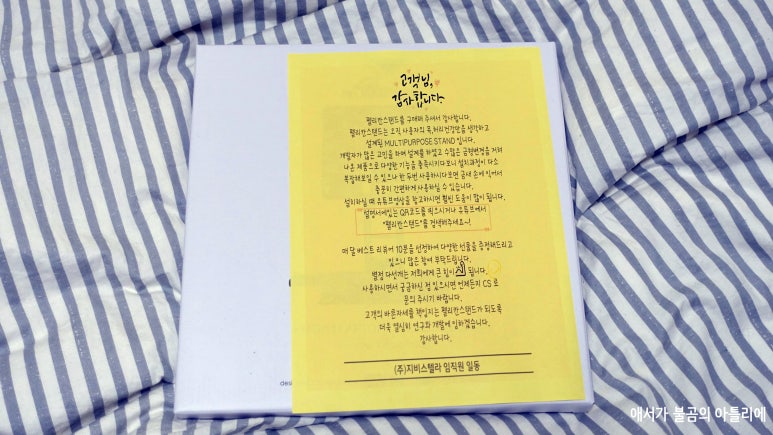 고객님,
감사합니다.
펠리칸스탠드를 구매해 주셔서 감사합니다.
펠리칸스탠드는 오직 사용자의 목,허리건강만을 생각하고
설계된 MULTIPURPOSE STAND 입니다.
개발자가 많은 고민을 하며 설계를 하였고 수많은 금형변경을 거쳐
나온 제품으로 다양한 기능을 충족시키다보니 설치과정이 다소
복잡해보일 수 있으나 한 두번 사용하시다보면 금새 손에 익어서
충분히 간편하게 사용하실 수 있습니다.
설치하실 때 유튜브영상을 참고하시면 훨씬 도움이 많이 됩니다.
설명서에있는 QR코드를 찍으시거나 유튜브에서
"펠리칸스탠드"를 검색해주세요~!
매 달 베스트 리뷰어 10분을 선정하여 다양한 선물을 증정해드리고
있으니 많은 참여 부탁드립니다.
별점 다섯개는 저희에게 큰 힘이 됩니다.
사용하시면서 궁금하신 점 있으시면 언제든지 CS 로
문의 주시기 바랍니다.
고객의 바른자세를 책임지는 펠리칸스탠드가 되도록
더욱 열심히 연구와 개발에 임하겠습니다.
감사합니다.
(주)지비스텔라 임직원 일동
애서가 불곰의 아틀리에